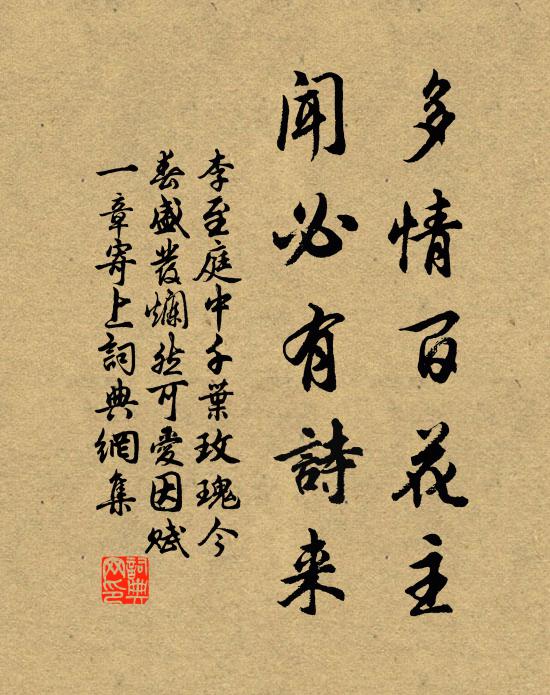 多情百花主
聞必有詩来
李至庭中千葉玫瑰今
春盛發爛然可愛因賦
一章寄上詞典網集
詞典
网印